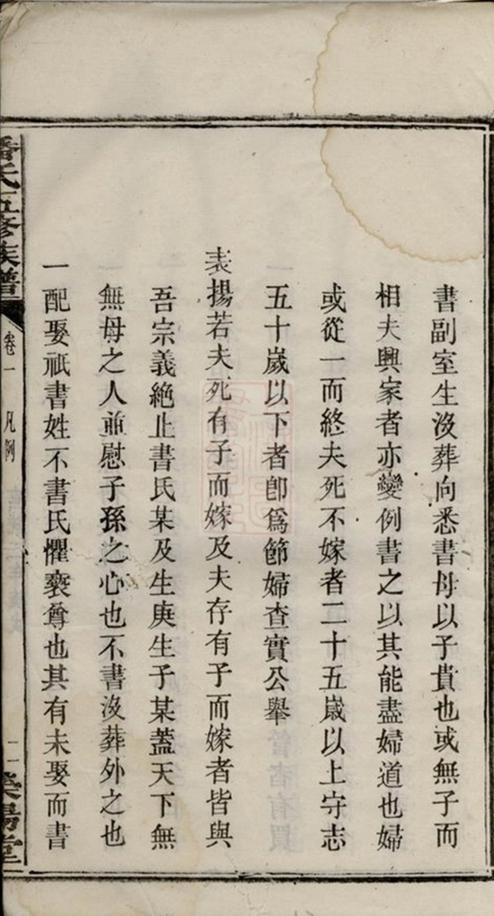 書副室生沒葬向悉書母以子貴也或無子而
相夫興家者亦變例書之以其能盡婦道也婦
或從一而終夫死不嫁者二十五歲以上守志
五十歲以下者卽爲節婦查實公舉
表揚若夫死有子而嫁及夫存有子而嫁者皆與
吾宗義絕止書氏某及生庚生子某蓋天下無
無母之人並慰子孫之心也不書沒葬外之也
一配娶祇書姓不書氏懼褻尊也其有未娶而書
潘氏五修族譜
卷一 凡例
二 榮陽堂